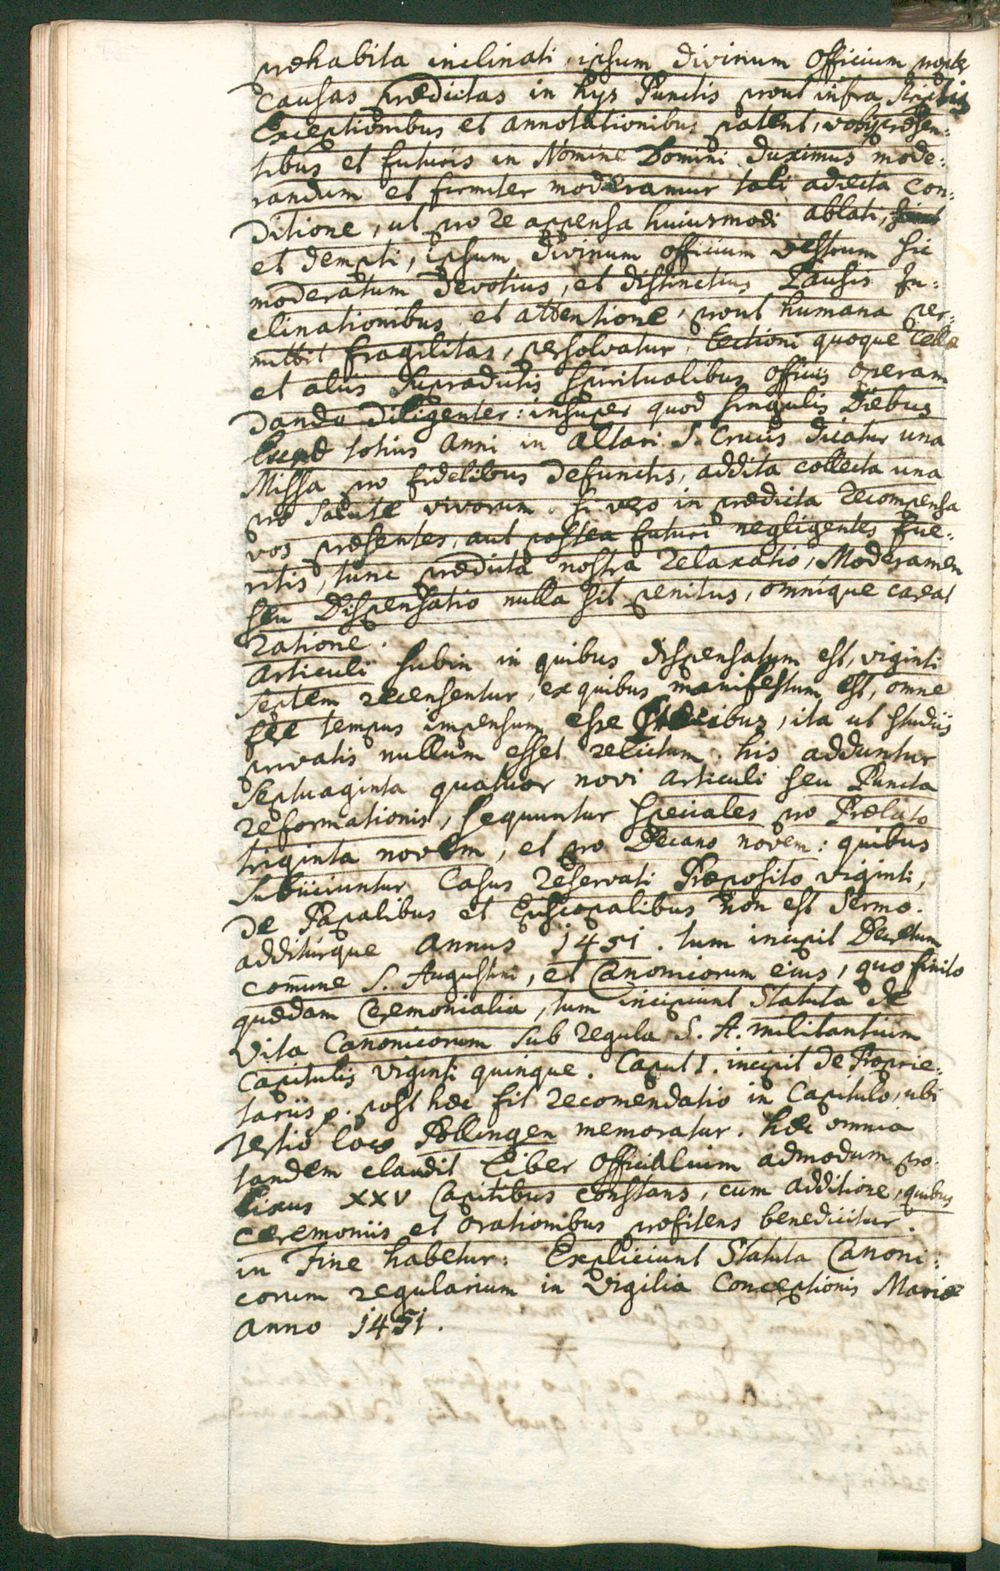 præhabita inclinati, ipsum divinum officium propter
causas prædictas in hys Punctis prout infra scriptis
Exceptionibus et annotationibus patent, vobis præsen-
tibus et futuris in Nomine Domini duximus mode:
randum et firmiter moderamur tali adiecta con:
ditione, ut pro re appensa huiusmodi ablati,
et dempti, ipsum divinum officium vestrum sic
moderatum devotius, et distinctius Pausis In:
clinationibus et attentione, prout humana per:
mittit fragilitas, persolvatur, Lectioni quoque Cellæ
et aliis supradictis spiritualibus officiis operam
dando diligenter: insuper quod singulis Diebus
totius anni in altari S. Crucis dicatur una
Missa pro fidelibus defunctis, addita collecta una
pro salute vivorum. si vero in prædicta recompensa
vos præsentes, aut postea futuri negligentes fue-
ritis, tunc prædicta nostra relaxatio, Moderamen
seu Dispensatio nulla sit penitus, omnique careat
ratione.
Articuli subin in quibus dispensatum est, viginti
septem recensentur, ex quibus manifestum est, omne
fere tempus impensum esse precibus, ita ut studiis
privatis nullum esset relictum. his adduntur
septuaginta quatuor novi articuli seu Puncta
reformationis, sequuntur speciales pro Prælato
triginta novem, et pro Decano novem: quibus
subiiciuntur Casus reservati Præposito viginti,
de Papalibus et Episcopalibus non est sermo.
additurque annus 1451. tum incipit Decretum
com̄une S. Augustini, et Canonicorum eius, quo finito
quædam Ceremonialia, tum incipiunt Statuta de
Vita Canonicorum sub regula S. A. militantium
Capitulis viginti quinque. Caput 1. incipit de Proprie:
tariis p. post hæc fit recomendatio in Capitulo, ubi
tertio loco Pollingen memoratur. hæc omnia
tandem claudit Liber officialium admodum pro-
lixus XXV Capitibus constans, cum additione, quibus
ceremoniis et orationibus profitens benedicitur.
in Fine habetur: Expliciunt Statuta Canoni:
corum regularium in Vigilia Conceptionis Mariæ
anno 1451.